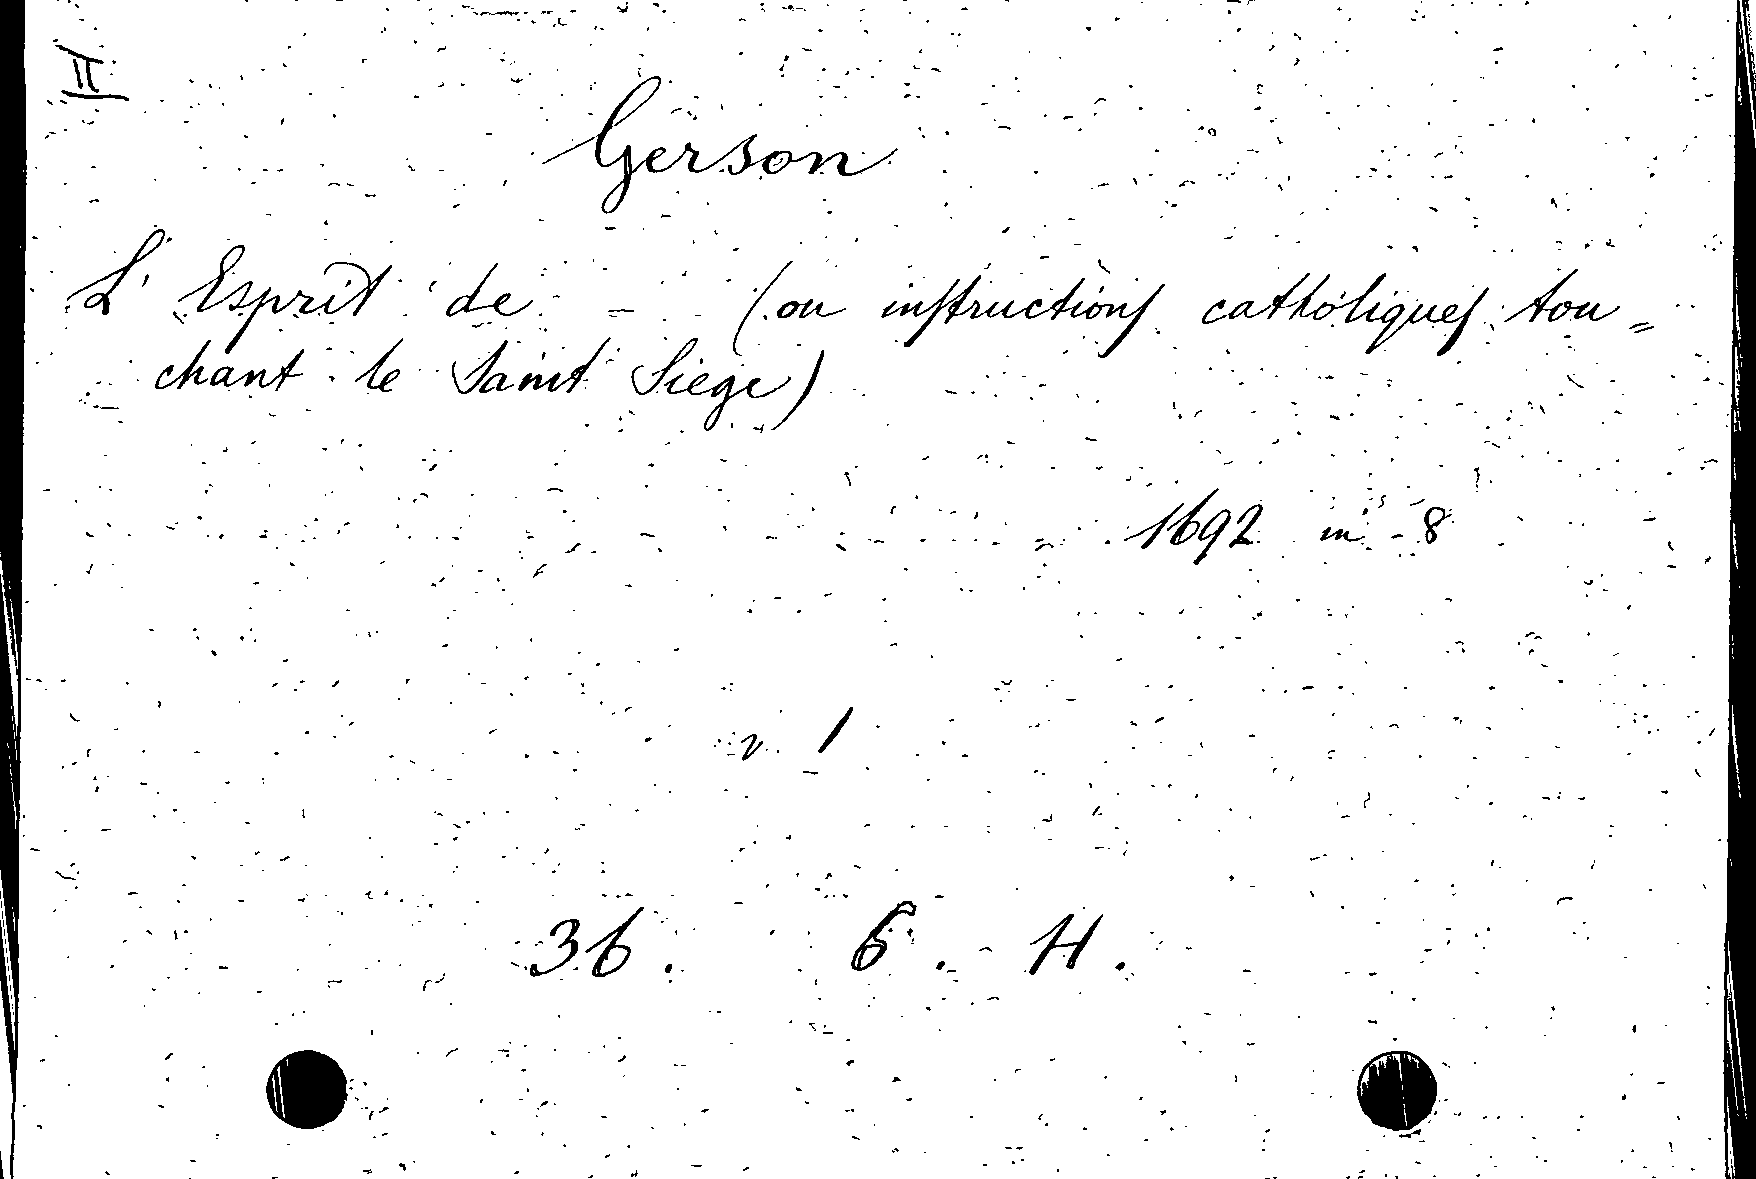 II
Gerson
L' Esprit de - (ou instructions catholiques tou=
chant le Saint Siege)
1692 in - 8
v. 1
36. 6. H.